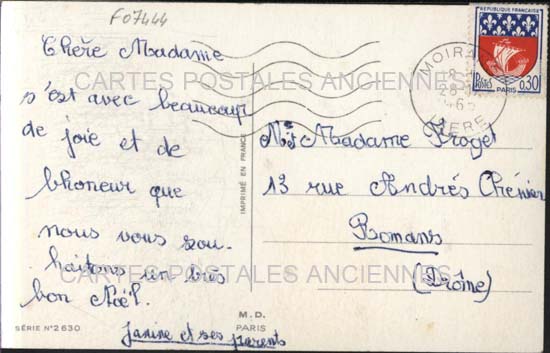 F07444
Chère Madame
s'est avec beaucoup
de joie et de
bhoneur que
nous vous sou-
haitons un très
bon Noël.
Janine et ses parents
SÉRIE N° 2630
M.D.
PARIS
IMPRIMÉ EN FRANCE
CARTES POSTALES ANCIENNES
CARTES POSTALES ANCIENNES
RÉPUBLIQUE FRANÇAISE
Postes
PARIS
0,30
MOIRANS
ISERE
Mr Madame Froget
13 rue Andrés Chénier
Romans
(Drôme)